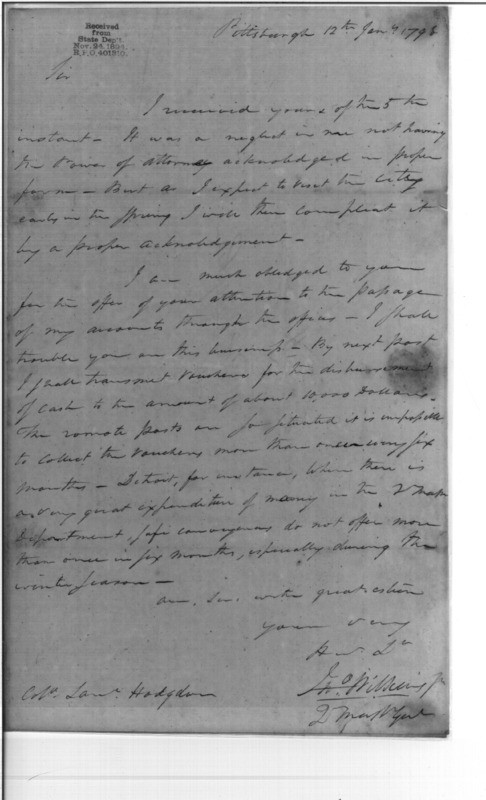 Received
from
State Dep't.
Nov. 24, 1894.
R.P.O. 401910.
Pittsburgh 12th Jany 1798
Sir
I received yours of the 5th
instant - It was a neglect in me not having
the Power of Attorney acknowledged in proper
form - But as I expect to visit the City
early in the Spring I will then compleat it
by a proper acknowledgement -
I am much obledged to you
for the offer of your attention to the passage
of my accounts through the offices - I shall
trouble you on this business - By next post
I shall transmit Vouchers for the disbursement
of Cash to the amount of about 10,000 Dollars -
The remote posts are so situated it is impossible
to collect the Vouchers more than once every six
months - Detroit, for instance, Where there is
a very great expenditure of money in the Q Mast
Department, safe conveyances do not offer more
than once in six months, especially during the
winter season -
am, Sir, with great esteem
your very
Hu. Sr
Jno Wilkins Jr
Q Mastr Genl
Colo. Saml. Hodgdon